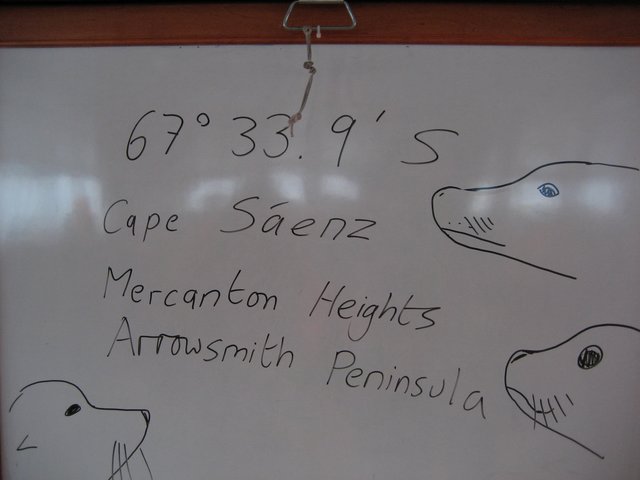 67° 33.9' S
Cape Sáenz
Mercanton Heights
Arrowsmith Peninsula